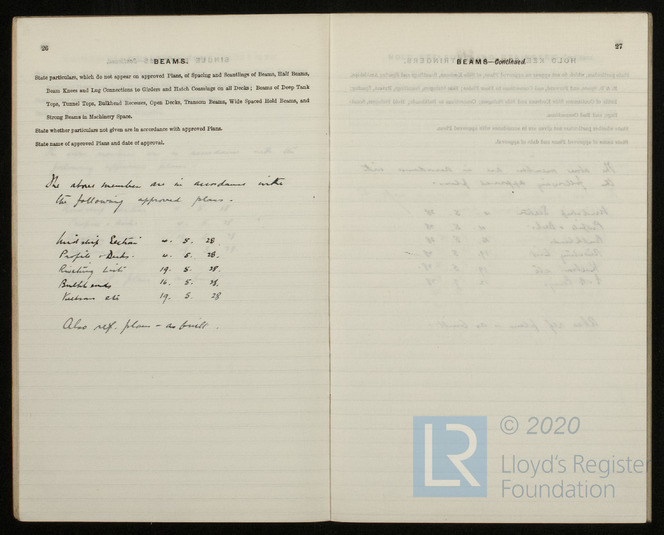 26
BEAMS.
State particulars, which do not appear on approved Plans, of Spacing and Scantlings of Beams, Half Beams,
Beam Knees and Lug Connections to Girders and Hatch Coamings on all Decks; Beams of Deep Tank
Tops, Tunnel Tops, Bulkhead Recesses, Open Decks, Transom Beams, Wide Spaced Hold Beams, and
Strong Beams in Machinery Space.
State whether particulars not given are in accordance with approved Plans.
State name of approved Plans and date of approval.
The above members are in accordance with
the following approved plans.
Midship Section 4. 5. 28
Profile & Decks. 4. 5. 28.
Riveting List 19. 5. 28.
Bulkheads 16. 5. 28.
Keelsons etc 19. 5. 28
Also ref. plan - as built.
27
BEAMS—Continued.
© 2020
LR
Lloyd's Register
Foundation